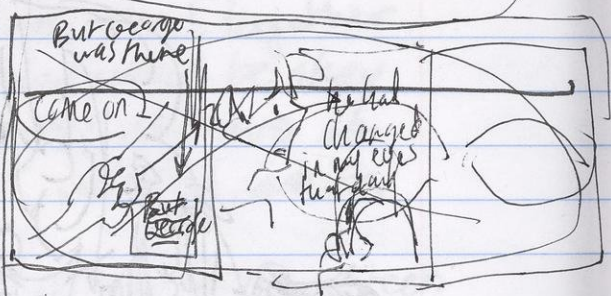 But George
was there
come on
But
George
He had
changed
in my eyes
that day